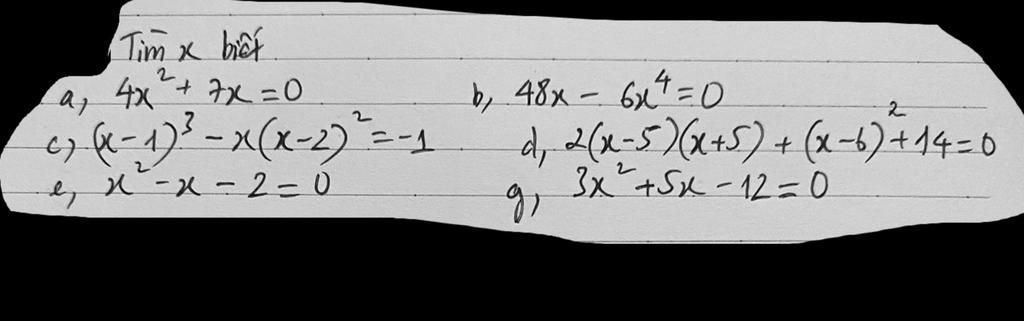 Tìm x biết
a, 4x² + 7x = 0 b, 48x - 6x⁴ = 0
c, (x-1)³ - x(x-2)² = -1 d, 2(x-5)(x+5) + (x-6)² + 14 = 0
e, x² - x - 2 = 0 g, 3x² + 5x - 12 = 0